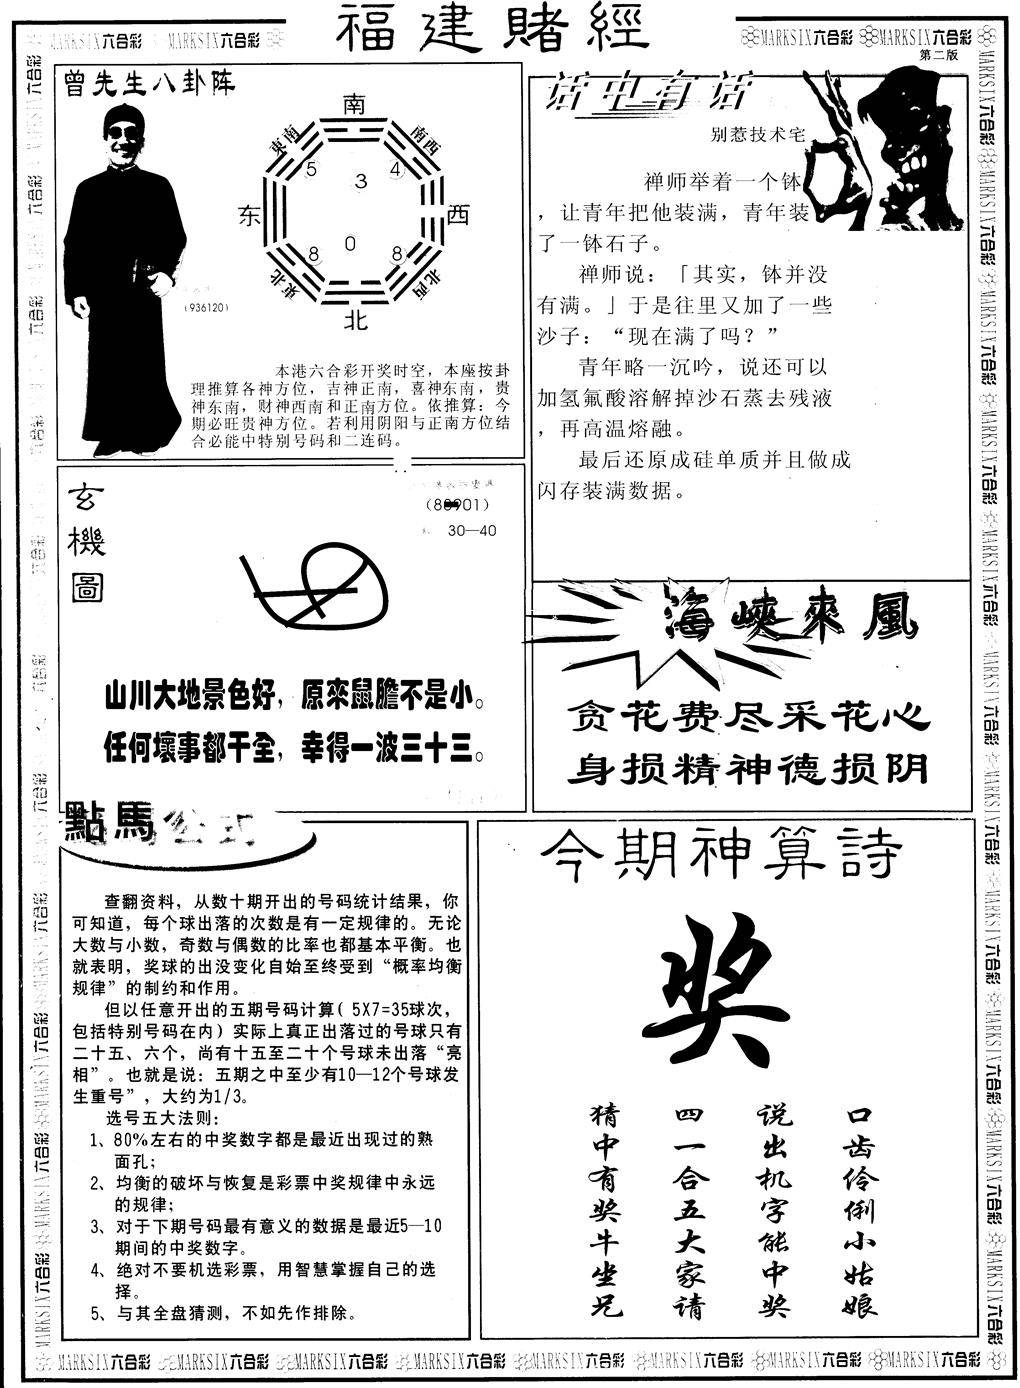 福建賭經
MARKSIX六合彩 MARKSIX六合彩
MARKSIX六合彩 MARKSIX六合彩
第二版
曾先生八卦阵
南
東南
南西
5
3
4
东
西
8
0
8
東北
北西
北
(936120)
本港六合彩开奖时空，本座按卦
理推算各神方位，吉神正南，喜神东南，贵
神东南，财神西南和正南方位。依推算：今
期必旺贵神方位。若利用阴阳与正南方位结
合必能中特别号码和二连码。
话中有话
别惹技术宅
禅师举着一个钵
，让青年把他装满，青年装
了一钵石子。
禅师说：「其实，钵并没
有满。」于是往里又加了一些
沙子：“现在满了吗？”
青年略一沉吟，说还可以
加氢氟酸溶解掉沙石蒸去残液
，再高温熔融。
最后还原成硅单质并且做成
闪存装满数据。
玄機圖
30—40
山川大地景色好，原來鼠膽不是小。
任何壞事都干全，幸得一波三十三。
海峽來風
贪花费尽采花心
身损精神德损阴
點馬公式
查翻资料，从数十期开出的号码统计结果，你
可知道，每个球出落的次数是有一定规律的。无论
大数与小数，奇数与偶数的比率也都基本平衡。也
就表明，奖球的出没变化自始至终受到“概率均衡
规律”的制约和作用。
但以任意开出的五期号码计算( 5X7=35球次，
包括特别号码在内)实际上真正出落过的号球只有
二十五、六个，尚有十五至二十个号球未出落“亮
相”。也就是说：五期之中至少有10—12个号球发
生重号”，大约为1/3。
选号五大法则：
1、80%左右的中奖数字都是最近出现过的熟
面孔；
2、均衡的破坏与恢复是彩票中奖规律中永远
的规律；
3、对于下期号码最有意义的数据是最近5—10
期间的中奖数字。
4、绝对不要机选彩票，用智慧掌握自己的选
择。
5、与其全盘猜测，不如先作排除。
今期神算詩
奖
口齿伶俐小姑娘
说出机字能中奖
四一合五大家请
猜中有奖牛坐兄
MARKSIX六合彩 MARKSIX六合彩 MARKSIX六合彩 MARKSIX六合彩 MARKSIX六合彩 MARKSIX六合彩 MARKSIX六合彩 MARKSIX六合彩